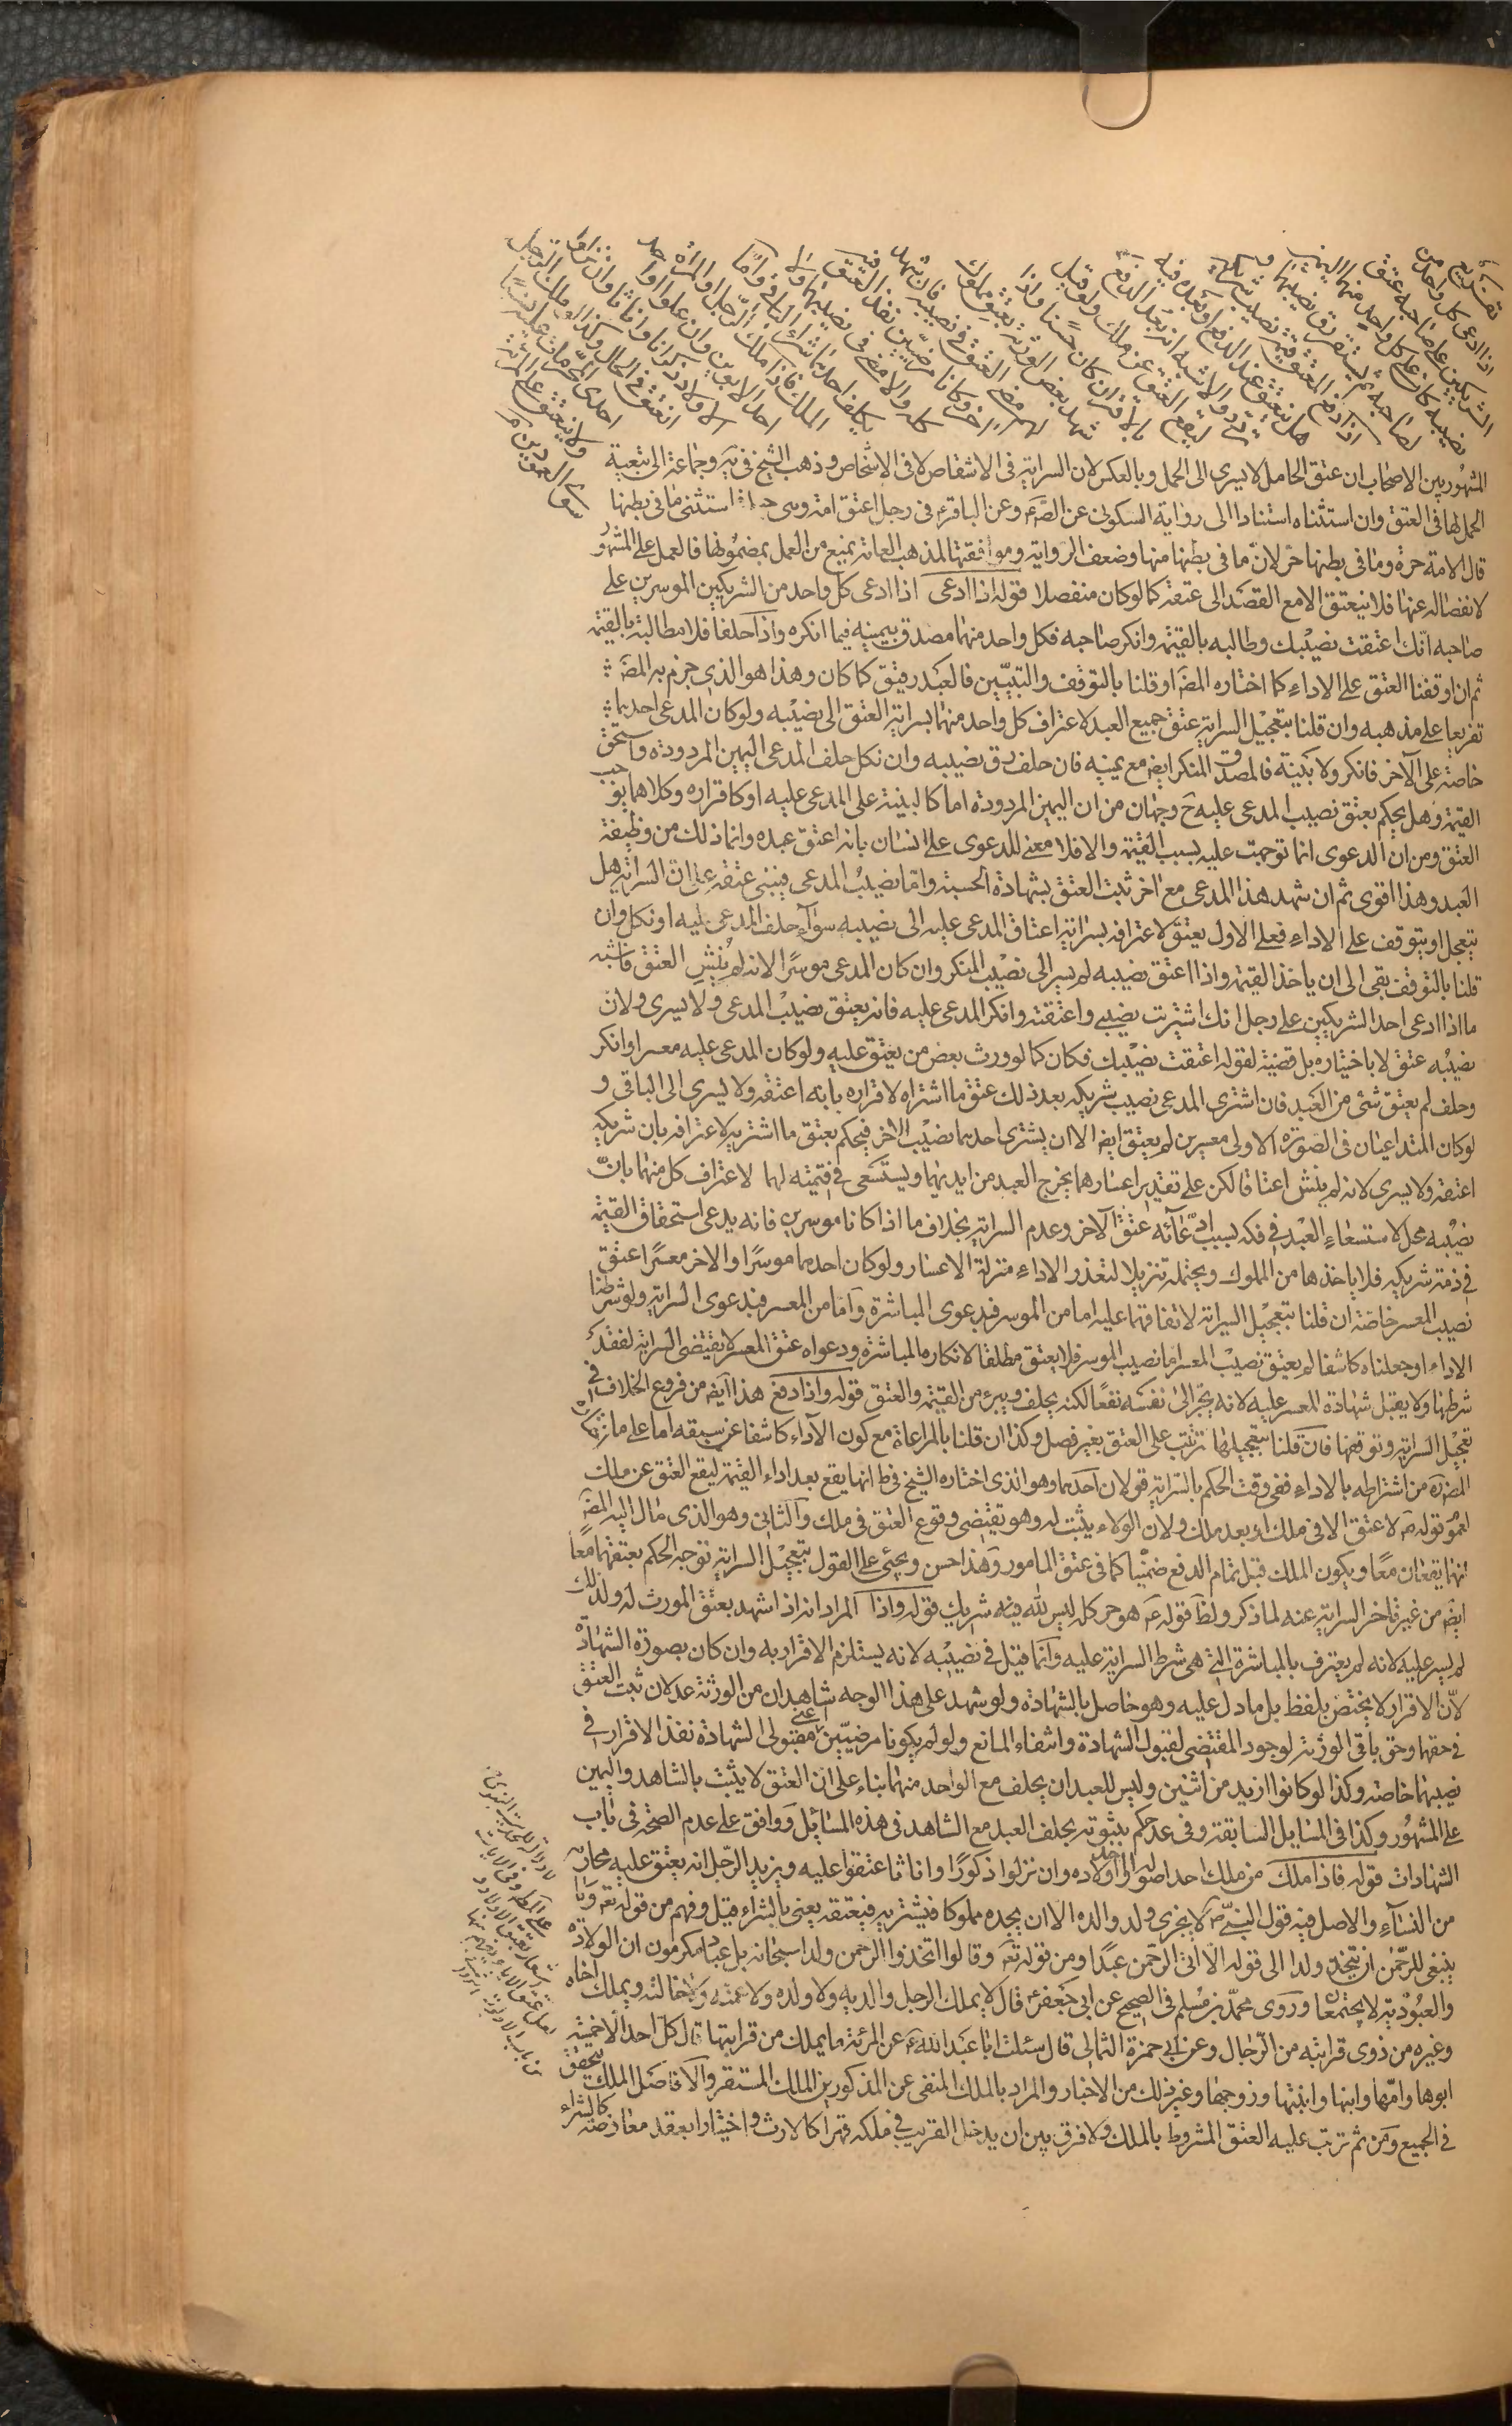 تفريع
اذا ادعى كل واحد من
الشريكين على صاحبه عتق
نصيبه كان على كل واحد منهما اليمين
لصاحبه ثم يستقر رق نصيبهما
اذا دفع المعتق قيمة نصيب شريكه
هل ينعتق عند الدفع او بعده فيه
تردد والاشبه انه بعد الدفع
ليقع العتق عن ملك ولو قيل
بالاقتران كان حسنا واذا
شهد بعض الورثة بعتق مملوك
لهم مضى العتق في نصيبه فان شهد
اخر وكانا مرضيين نفذ العتق فيه
كله والا مضى في نصيبهما ولا
يكلف احدهما شراء الباقي واما
الملك فاذا ملك الرجل او المراة
احد الابوين وان علوا او
الاولاد ذكرانا واناثا وان نزلوا
انعتق في الحال وكذا لو ملك الرجل
احدى المحرمات عليه نسبا
ولا ينعتق على المرئة
سوى العمودين
المشهور بين الاصحاب ان عتق الحامل لا يسرى الى الحمل وبالعكس لان السراية في الاشقاص لا في الاشخاص وذهب الشيخ في ية وجماعة الى تبعية
الحمل لها في العتق وان استثناه استنادا الى رواية السكوني عن الصّ ع وعن الباقر ع في رجل اعتق امته وهي حبلى استثنى ما في بطنها
قال الامة حرة وما في بطنها حر لانّ ما في بطنها منها وضعف الرواية وموافقتها لمذهب العامة يمنع من العمل بمضمونها فالعمل على المشهور
لانفصاله عنها فلا ينعتق الا مع القصد الى عتقه كما لو كان منفصلا قوله اذا ادعى اذا ادعى كل واحد من الشريكين الموسرين على
صاحبه انّك اعتقت نصيبك وطالبه بالقيمة وانكر صاحبه فكل واحد منهما مصدق بيمينه فيما انكره واذا حلفا فلا مطالبة بالقيمة
ثم ان اوقفنا العتق على الاداء كما اختاره المصَ او قلنا بالتوقف والتبيّن فالعبد رقيق كما كان وهذا هو الذي جزم به المصَ
تفريعا على مذهبه وان قلنا بتعجيل السراية عتق جميع العبد لاعتراف كل واحد منهما بسراية العتق الى نصيبه ولو كان المدعى احدهما
خاصة على الآخر فانكر ولا بيّنة فالمصدق المنكر ايض مع يمينه فان حلف رق نصيبه وان نكل حلف المدعى اليمين المردودة واستحق
القيمة وهل يحكم بعتق نصيب المدعى عليه حَ وجهان من ان اليمين المردودة اما كالبينة على المدعى عليه او كاقراره وكلاهما يوجب
العتق ومن ان الدعوى انما توجهت عليه بسبب القيمة والا فلا معنى للدعوى على انسان بانه اعتق عبده وانما ذلك من وظيفة
العبد وهذا اقوى ثم ان شهد هذا المدعى مع اخر ثبت العتق بشهادة الحسبة وامّا نصيب المدعى فيبنى عتقه على انّ السراية هل
يتعجل او يتوقف على الاداء فعلى الاول يعتق لاعترافه بسراية اعتاق المدعى عليه الى نصيبه سواء حلف المدعى عليه او نكل وان
قلنا بالتوقف بقى الى ان ياخذ القيمة واذا اعتق نصيبه لم يسر الى نصيب المنكر وان كان المدعى موسرًا لانه لم يُنشِ العتق فاشبه
ما اذا ادعى احد الشريكين على رجل انك اشتريت نصيبي واعتقته وانكر المدعى عليه فانه يعتق نصيب المدعى ولا يسرى ولانّ
نصيبه عتق لا باختياره بل قضية لقوله اعتقت نصيبك فكان كما لو ورث بعض من يعتق عليه ولو كان المدعى عليه معسرا وانكر
وحلف لم يعتق شئ من العبد فان اشترى المدعى نصيب شريكه بعد ذلك عتق ما اشتراه لاقراره بانه اعتقه ولا يسرى الى الباقى و
لو كان المتداعيان في الصورة الاولى معسرين لم يعتق ايض الا ان يشترى احدهما نصيب الاخر فيحكم بعتق ما اشتريه لاعترافه بان شريكه
اعتقه ولا يسرى لانه لم ينش اعتاقا لكن على تقدير اعسارهما يخرج العبد من ايديهما ويستسعى في قيمته لهما لاعتراف كل منهما بانّ
نصيبه محل لاستسعاء العبد في فكه بسبب ادّعائه عتق الآخر وعدم السراية بخلاف ما اذا كانا موسرين فانه يدعى استحقاق القيمة
في ذمة شريكه فلا ياخذها من المملوك ويحتمله تنزيلا لتعذر الاداء منزلة الاعسار ولو كان احدهما موسرًا والاخر معسرًا عتق
نصيب المعسر خاصة ان قلنا بتعجيل السراية لاتفاقهما عليه اما من الموسر فبدعوى المباشرة واما من المعسر فبدعوى السراية ولو شرطنا
الاداء او جعلناه كاشفا لم يعتق نصيب المعسر اما نصيب الموسر فلا يعتق مطلقا لانكاره المباشرة ودعواه عتق المعسر لا يقتضى السراية لفقد
شرطها ولا يقبل شهادة المعسر عليه لانه يجرّ الى نفسه نفعًا لكنه يحلف ويبرء من القيمة والعتق قوله واذا دفع هذا ايض من فروع الخلاف في
تعجيل السراية وتوقفها فان قلنا بتعجيلها ترتب على العتق بغير فصل وكذا ان قلنا بالمراعاة مع كون الآداء كاشفا عن سبقه اما على ما ذكره
المص ره من اشتراطه بالاداء ففي وقت الحكم بالسراية قولان احدهما وهو الذي اختاره الشيخ في ط انها يقع بعد اداء القيمة ليقع العتق عن ملك
لعموم قوله ص لا عتق الا في ملك او بعد ملك ولان الولاء يثبت له وهو يقتضى وقوع العتق في ملك والثاني وهو الذي مال اليه المصَ
انهما يقعان معًا ويكون الملك قبل تمام الدفع ضمنيا كما في عتق المامور وهذا حسن ويجئ على القول بتعجيل السراية توجه الحكم بعتقهما معًا
ايض من غير تاخر السراية عنه لما ذكر ولظَ قوله ع هو حر كله ليس لله فيه شريك قوله واذا المراد انه اذا شهد بعتق المورث له ولذلك
لم يسر عليه لانه لم يعترف بالمباشرة التي هي شرط السراية عليه وانما قبل في نصيبه لانه يستلزم الاقرار به وان كان بصورة الشهادة
لانّ الاقرار لا يختص بلفظ بل ما دل عليه وهو حاصل بالشهادة ولو شهد على هذا الوجه شاهدان من الورثة عدلان ثبت العتق
في حقهما وحق باقى الورثة لوجود المقتضى لقبول الشهادة وانتفاء المانع ولو لم يكونا مرضيّين اعني مقبولى الشهادة نفذ الاقرار في
نصيبهما خاصة وكذا لو كانوا ازيد من اثنين وليس للعبد ان يحلف مع الواحد منهما بناء على ان العتق لا يثبت بالشاهد واليمين
على المشهور وكذا في المسايل السابقة وفي عد حكم بثبوته بحلف العبد مع الشاهد في هذه المسائل ووافق على عدم الصحة في باب
الشهادات قوله فاذا ملك من ملك احد اصوله او احد اولاده وان نزلوا ذكورًا واناثا عتقوا عليه ويزيد الرجل انه يعتق عليه محارمه
من النساء والاصل فيه قول النبي ص لا يجزى ولد والده الا ان يجده مملوكا فيشتريه فيعتقه يعنى بالشراء قيل وفهم من قوله تع وما
ينبغى للرحمن ان يتخذ ولدا الى قوله الا اتى الرحمن عبدًا ومن قوله تع وقالوا اتخذ الرحمن ولدا سبحانه بل عباد مكرمون ان الولادة
والعبودية لا يجتمعان وروى محمد بن مسلم في الصحيح عن ابي جعفر ع قال لا يملك الرجل والديه ولا ولده ولا عمته ولا خالته ويملك اخاه
وغيره من ذوى قرابته من الرجال وعن ابي حمزة الثمالى قال سئلت ابا عبد الله ع عن المرئة ما يملك من قرابتها قال كل احد الا خمسة
ابوها وامّها وابنها وابنتها وزوجها وغير ذلك من الاخبار والمراد بالملك المنفى عن المذكورين الملك المستقر والا فاصل الملك يتحقق
في الجميع ومن ثم ترتب عليه العتق المشروط بالملك ولا فرق بين ان يدخل القريب في ملكه قهرا كالارث واختيارا بعقد معاوضة كالشراء